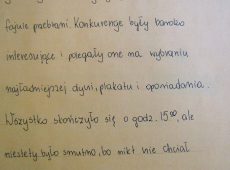 fajnie przebrani. Konkurencje były bardzo
interesujące i polegały one na wybraniu
najładniejszej dyni, plakatu i opowiadania.
Wszystko skończyło się o godz. 15⁰⁰, ale
niestety było smutno, bo nikt nie chciał